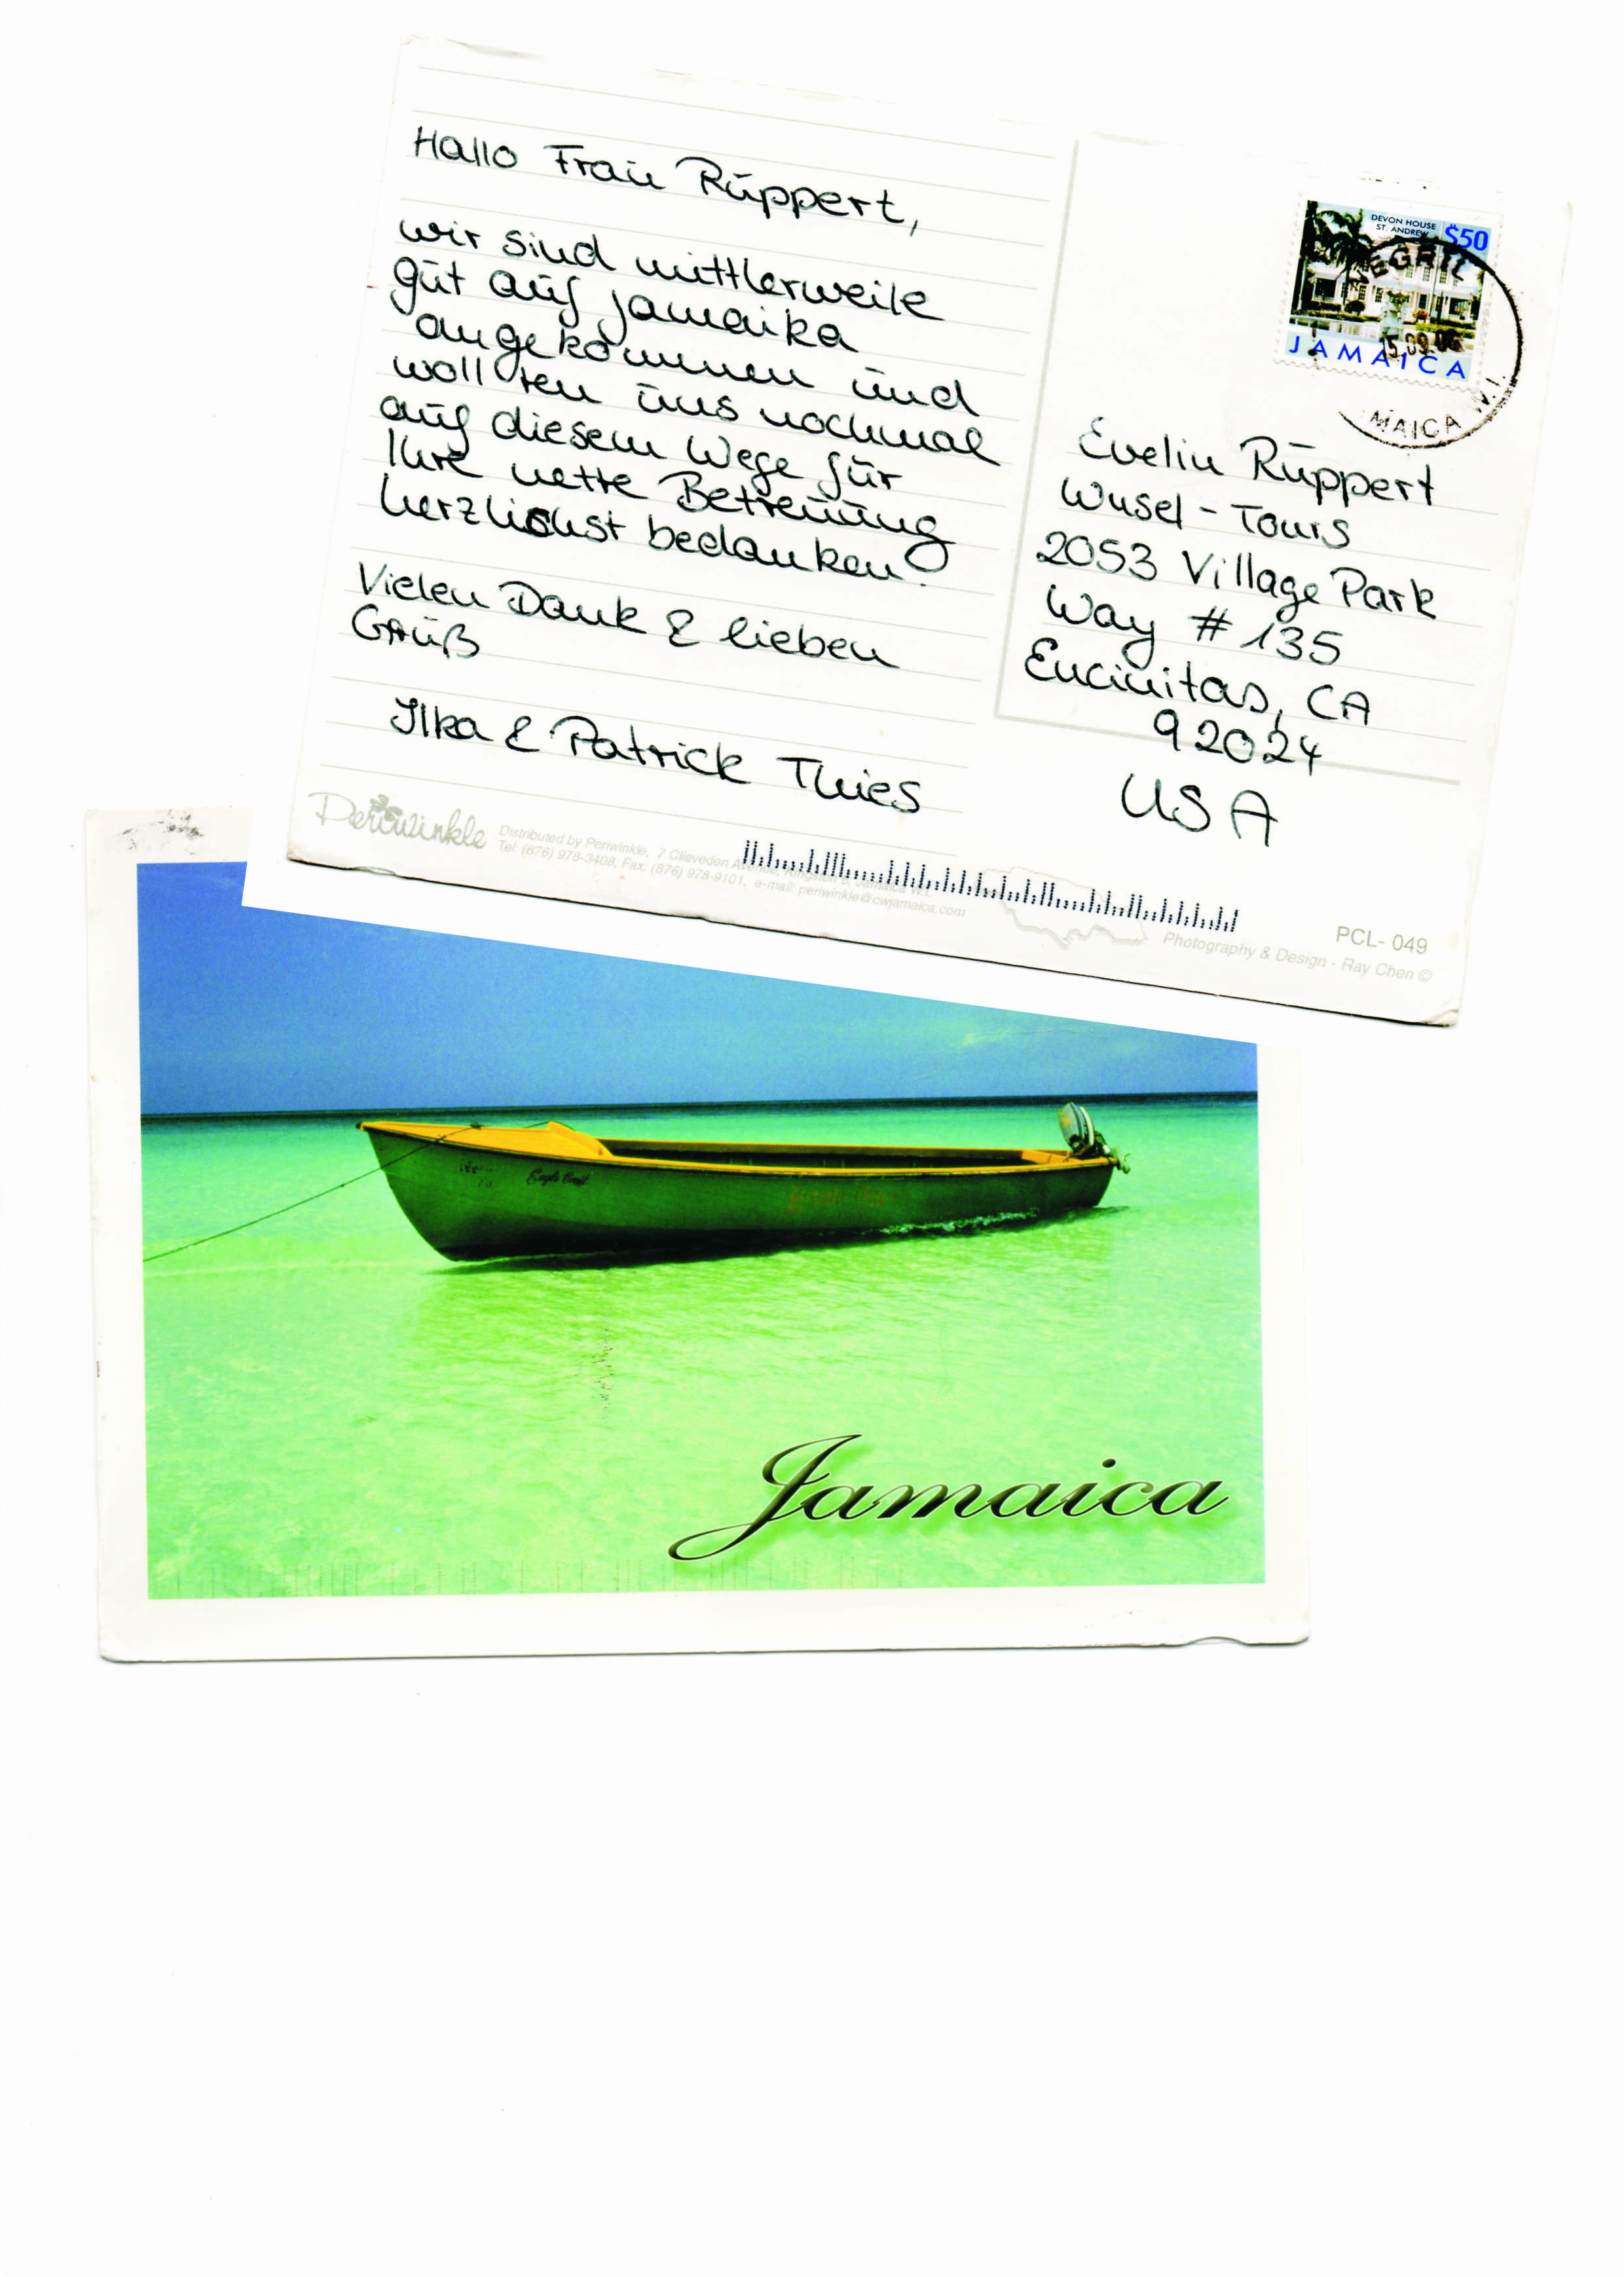 Hallo Frau Ruppert,
wir sind mittlerweile
gut auf Jamaika
angekommen und
wollten uns nochmal
auf diesem Wege für
Ihre nette Betreuung
herzlichst bedanken.
Vielen Dank & lieben
Gruß
Ilka & Patrick Thies
DEVON HOUSE
ST. ANDREW
$50
JAMAICA
NEGRIL
15.09.06
MAICA W.I.
Evelin Ruppert
Wusel-Tours
2053 Village Park
Way #135
Encinitas, CA
92024
USA
Periwinkle
Distributed by Periwinkle, 7 Clieveden Avenue, Kingston 6, Jamaica W.I.
Tel: (876) 978-3408, Fax: (876) 978-9101, e-mail: periwinkle@cwjamaica.com
PCL- 049
Photography & Design - Ray Chen ©
Eagle Boat
Jamaica